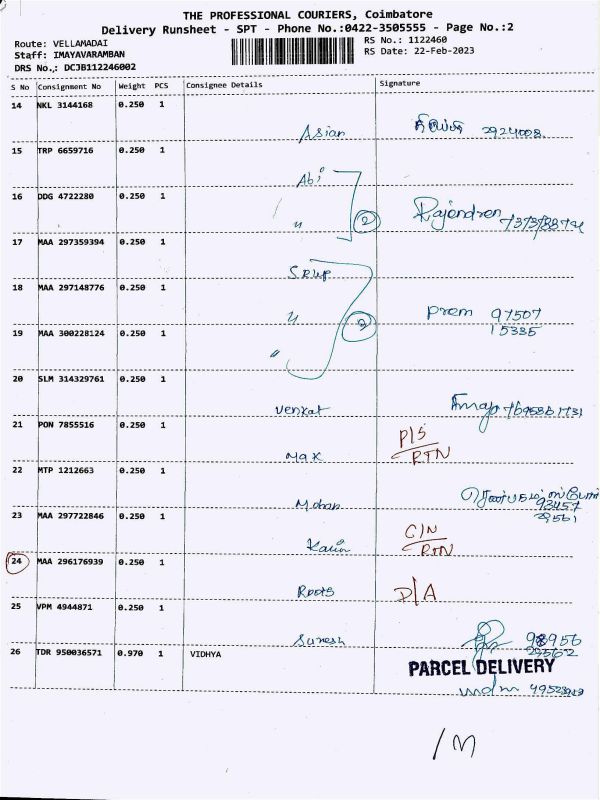 THE PROFESSIONAL COURIERS, Coimbatore
Delivery Runsheet - SPT - Phone No.:0422-3505555 - Page No.:2
Route: VELLAMADAI
Staff: IMAYAVARAMBAN
DRS No.,: DCJB112246002
RS No.: 1122460
RS Date: 22-Feb-2023
S No Consignment No Weight PCS Consignee Details Signature
14 NKL 3144168 0.250 1
Asian 2924008
15 TRP 6659716 0.250 1
Abi
16 DDG 4722280 0.250 1
" 2 Rajendren
17 MAA 297359394 0.250 1
18 MAA 297148776 0.250 1
" Prem 97507
19 MAA 300228124 0.250 1 15335
"
20 SLM 314329761 0.250 1
Venkat
21 PON 7855516 0.250 1
Max P/S
RTN
22 MTP 1212663 0.250 1
Mohan 93457
23 MAA 297722846 0.250 1 29561
C/N
RTN
24 MAA 296176939 0.250 1
Roots D/A
25 VPM 4944871 0.250 1
Suresh 98956
26 TDR 950036571 0.970 1 VIDHYA
PARCEL DELIVERY